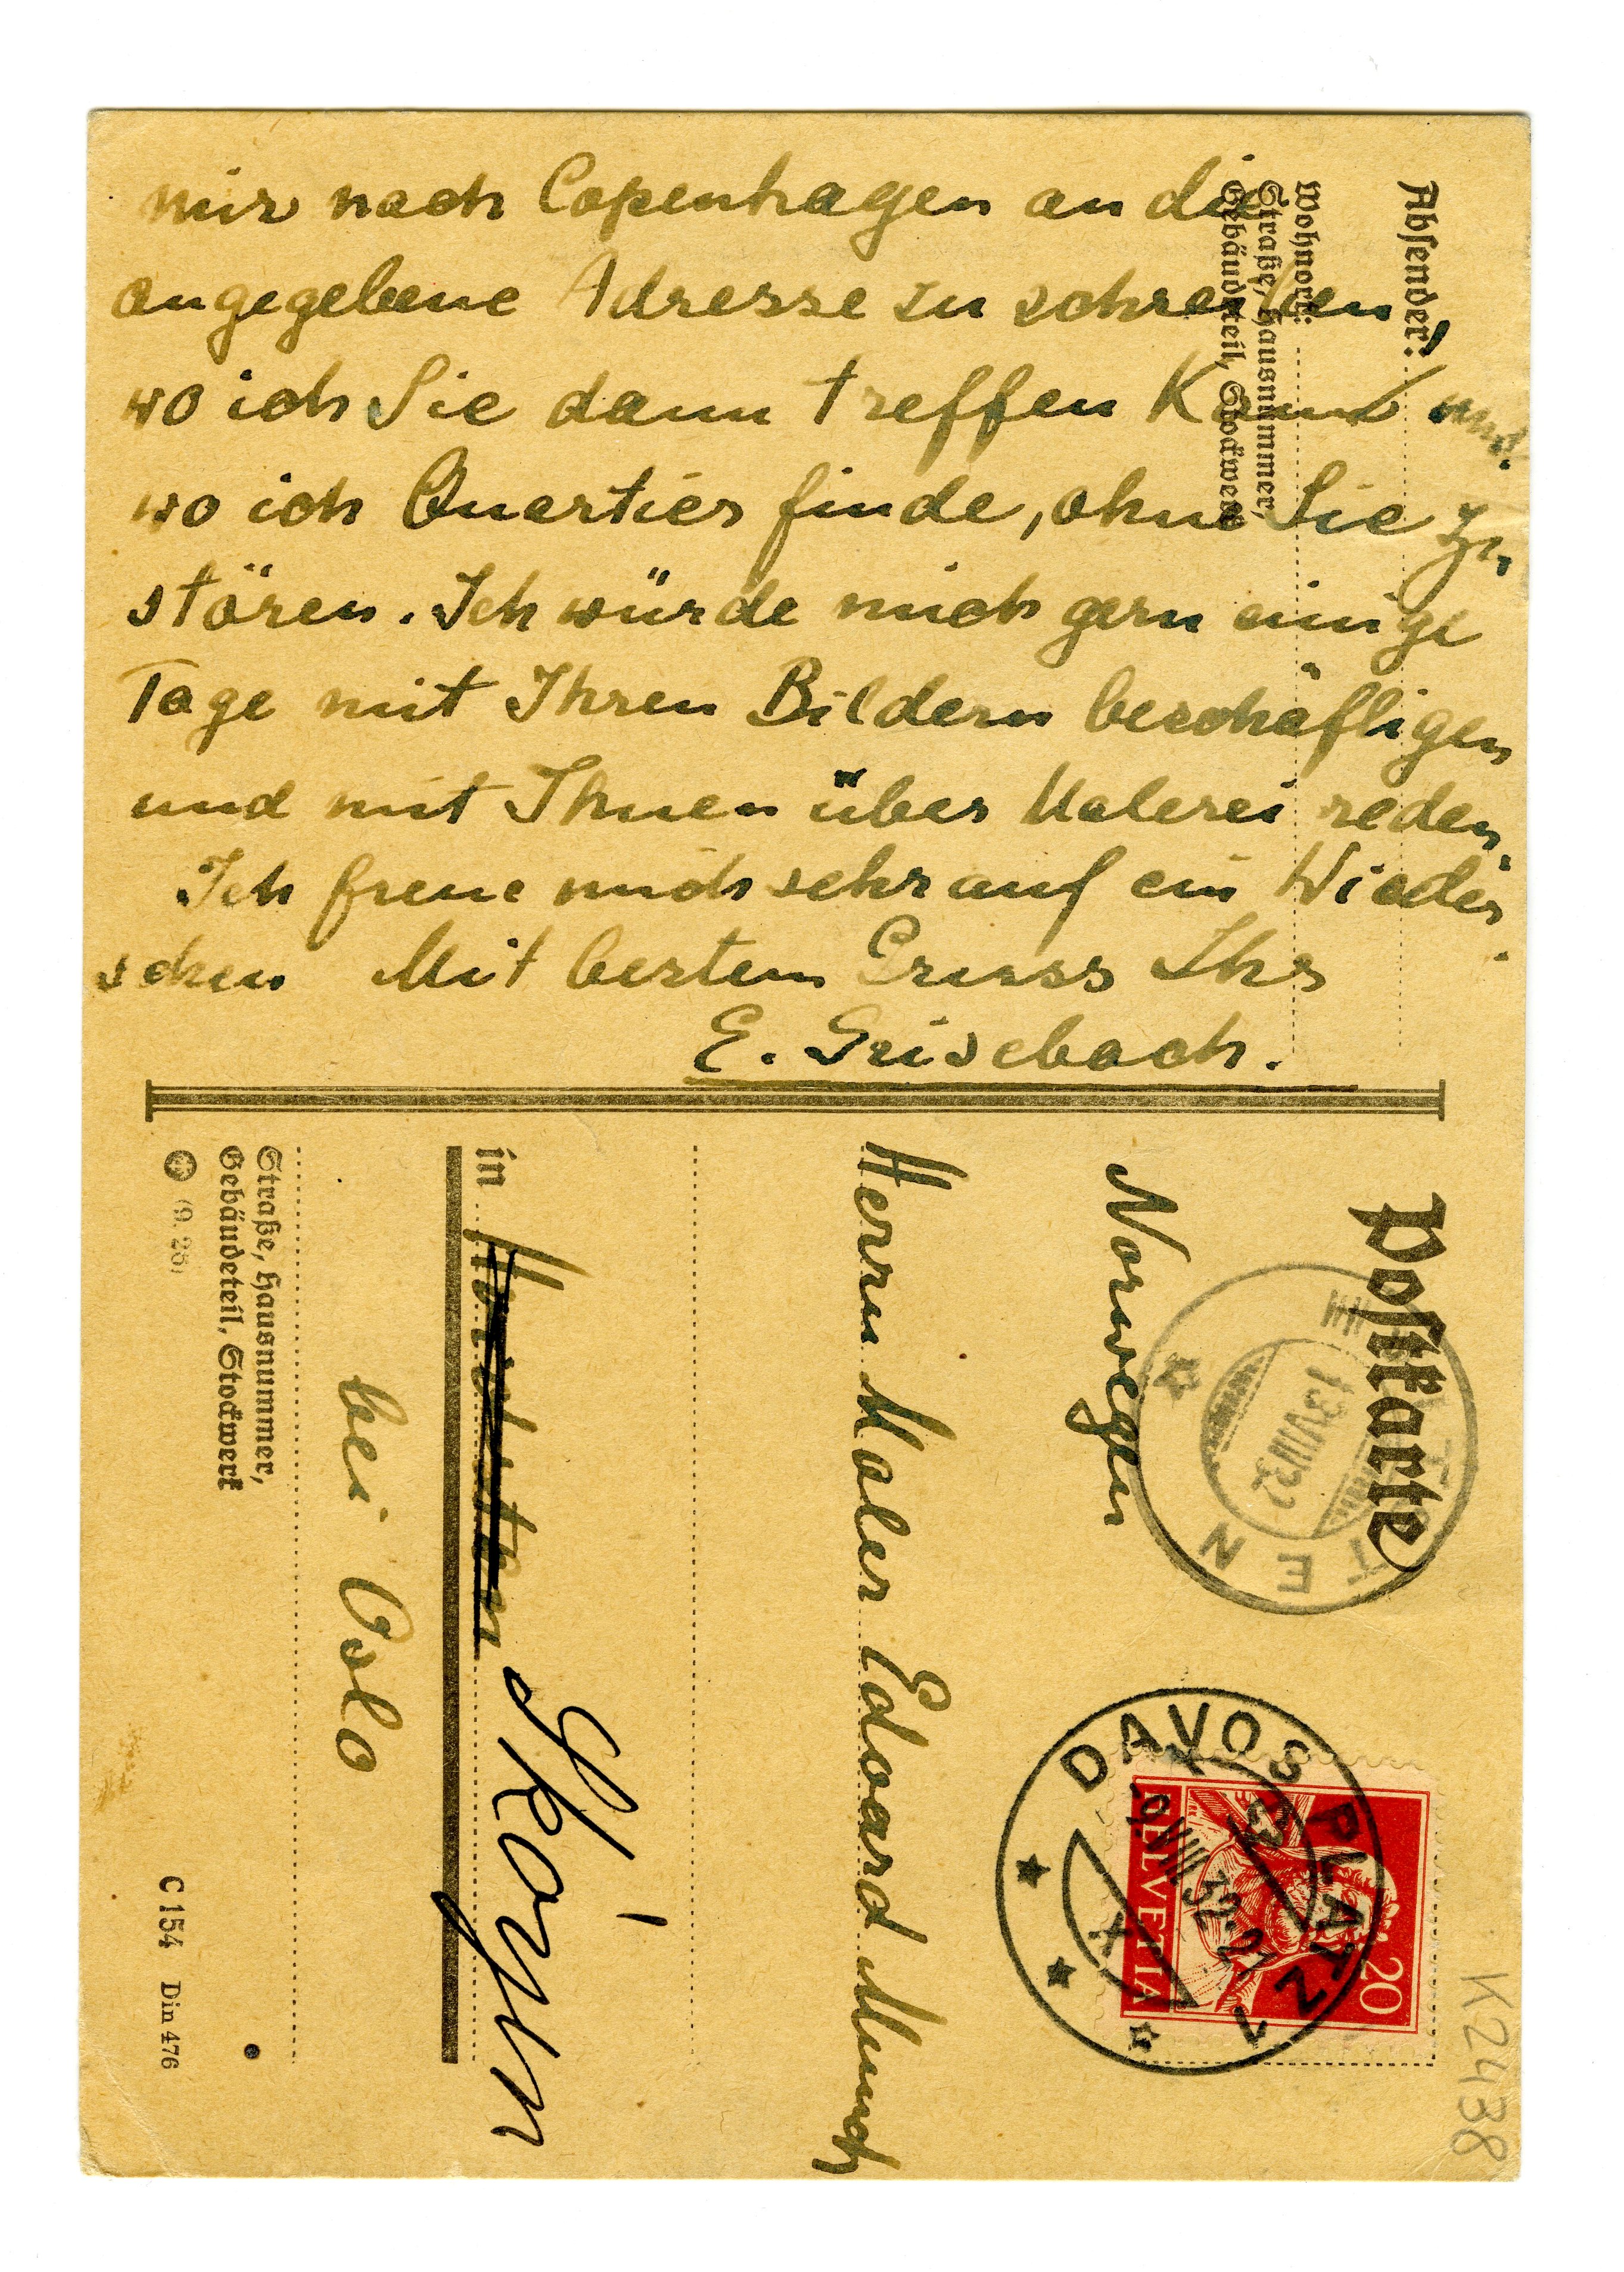 mir nach Copenhagen an die
angegebene Adresse zu schreiben,
wo ich Sie dann treffen kann und
wo ich Quartier finde, ohne Sie zu
stören. Ich würde mich gern einige
Tage mit Ihren Bildern beschäftigen
und mit Ihnen über Malerei reden.
Ich freue mich sehr auf ein Wieder
sehen Mit bestem Gruss Ihr
E. Grisebach.
Absender:
Wohnort:
Straße, Hausnummer,
Gebäudeteil, Stockwerk
Postkarte
13 VIII 32
TEN
DAVOS PLATZ 1
-9.VIII 32-21
X
20
HELVETIA
K 2438
Norwegen
Herrn Maler Edvard Munch
in Skøyen
bei Oslo
Straße, Hausnummer,
Gebäudeteil, Stockwerk
(9. 25)
C 154 Din 476